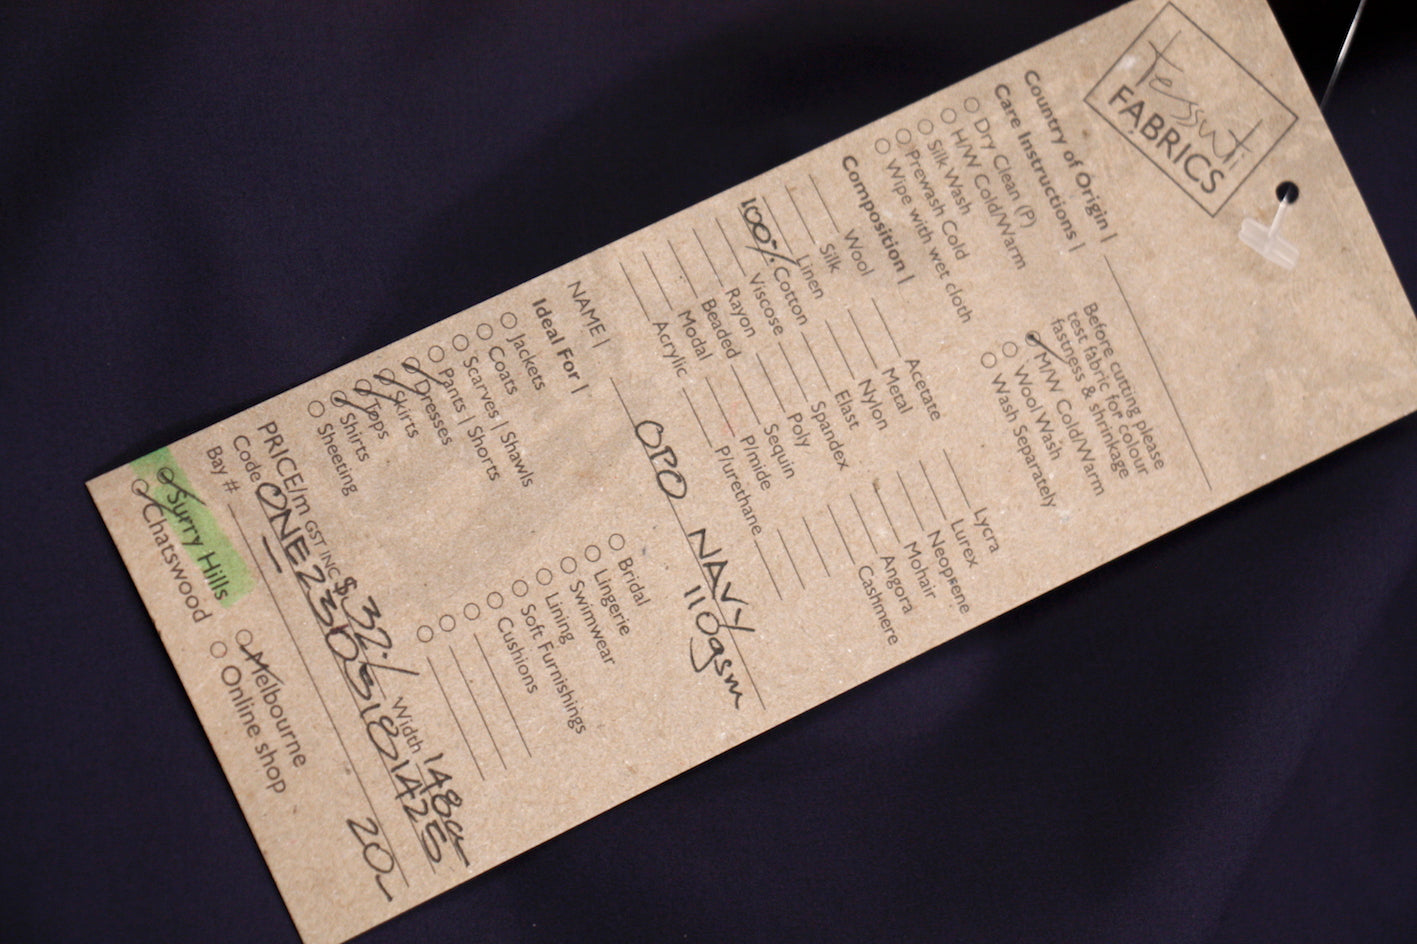 tessuti
FABRICS
Country of Origin |
Care Instructions |
Dry Clean (P)
H/W Cold/Warm
Silk Wash
Prewash Cold
Wipe with wet cloth
Before cutting please
test fabric for colour
fastness & shrinkage
M/W Cold/Warm
Wool Wash
Wash Separately
Composition |
Wool
Silk
Linen
100% Cotton
Viscose
Rayon
Beaded
Modal
Acrylic
Acetate
Metal
Nylon
Elast
Spandex
Poly
Sequin
P/mide
P/urethane
Lycra
Lurex
Neoprene
Mohair
Angora
Cashmere
NAME | OPO NAVY
110gsm
Ideal For |
Jackets
Coats
Scarves | Shawls
Pants | Shorts
Dresses
Skirts
Tops
Shirts
Sheeting
Bridal
Lingerie
Swimwear
Lining
Soft Furnishings
Cushions
PRICE/m GST INC $32./ Width 148cm
Code ONE
Bay # 20
Surry Hills
Chatswood
Melbourne
Online shop